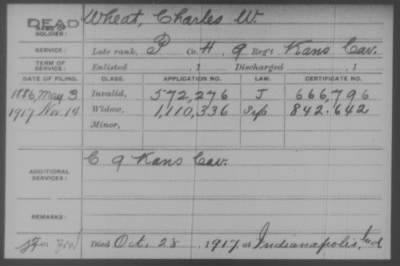 DEAD
NAME OF SOLDIER: Wheat, Charles W.
SERVICE: Late rank, P Co. H, 9 Reg't Kans Cav.
TERM OF SERVICE: Enlisted , 1 Discharged , 1
DATE OF FILING. CLASS. APPLICATION NO. LAW. CERTIFICATE NO.
1886, May 3 Invalid, 572,276 J 666,796
1917 Nov. 14 Widow, 1,110,336 842.642
Minor,
ADDITIONAL SERVICES: C 9 Kans Cav.
REMARKS:
Died Oct. 28, 1917, at Indianapolis, Ind